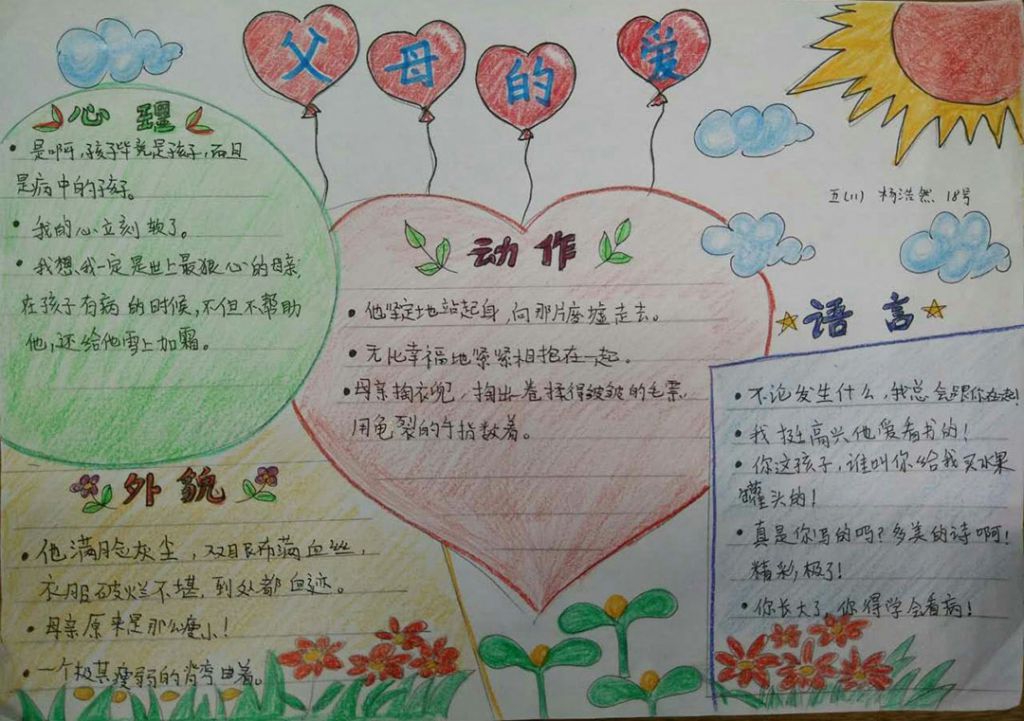 父母的爱
五(1) 杨浩然 18号
心理
• 是啊,孩子毕竟是孩子,而且
是病中的孩子。
• 我的心立刻软了。
• 我想,我一定是世上最狠心的母亲,
在孩子有病的时候,不但不帮助
他,还给他雪上加霜。
动作
• 他坚定地站起身,向那片废墟走去。
• 无比幸福地紧紧相抱在一起。
• 母亲掏衣兜,掏出一卷揉得皱皱的毛票,
用龟裂的手指数着。
语言
• 不论发生什么,我总会跟你在一起!
• 我挺高兴他爱看书的!
• 你这孩子,谁叫你给我买水果
罐头的!
• 真是你写的吗?多美的诗啊!
精彩极了!
• 你长大了,你得学会看病!
外貌
• 他满脸灰尘,双眼布满血丝,
衣服破烂不堪,到处都血迹。
• 母亲原来是那么瘦小!
• 一个极其瘦弱的脊背弯曲着。